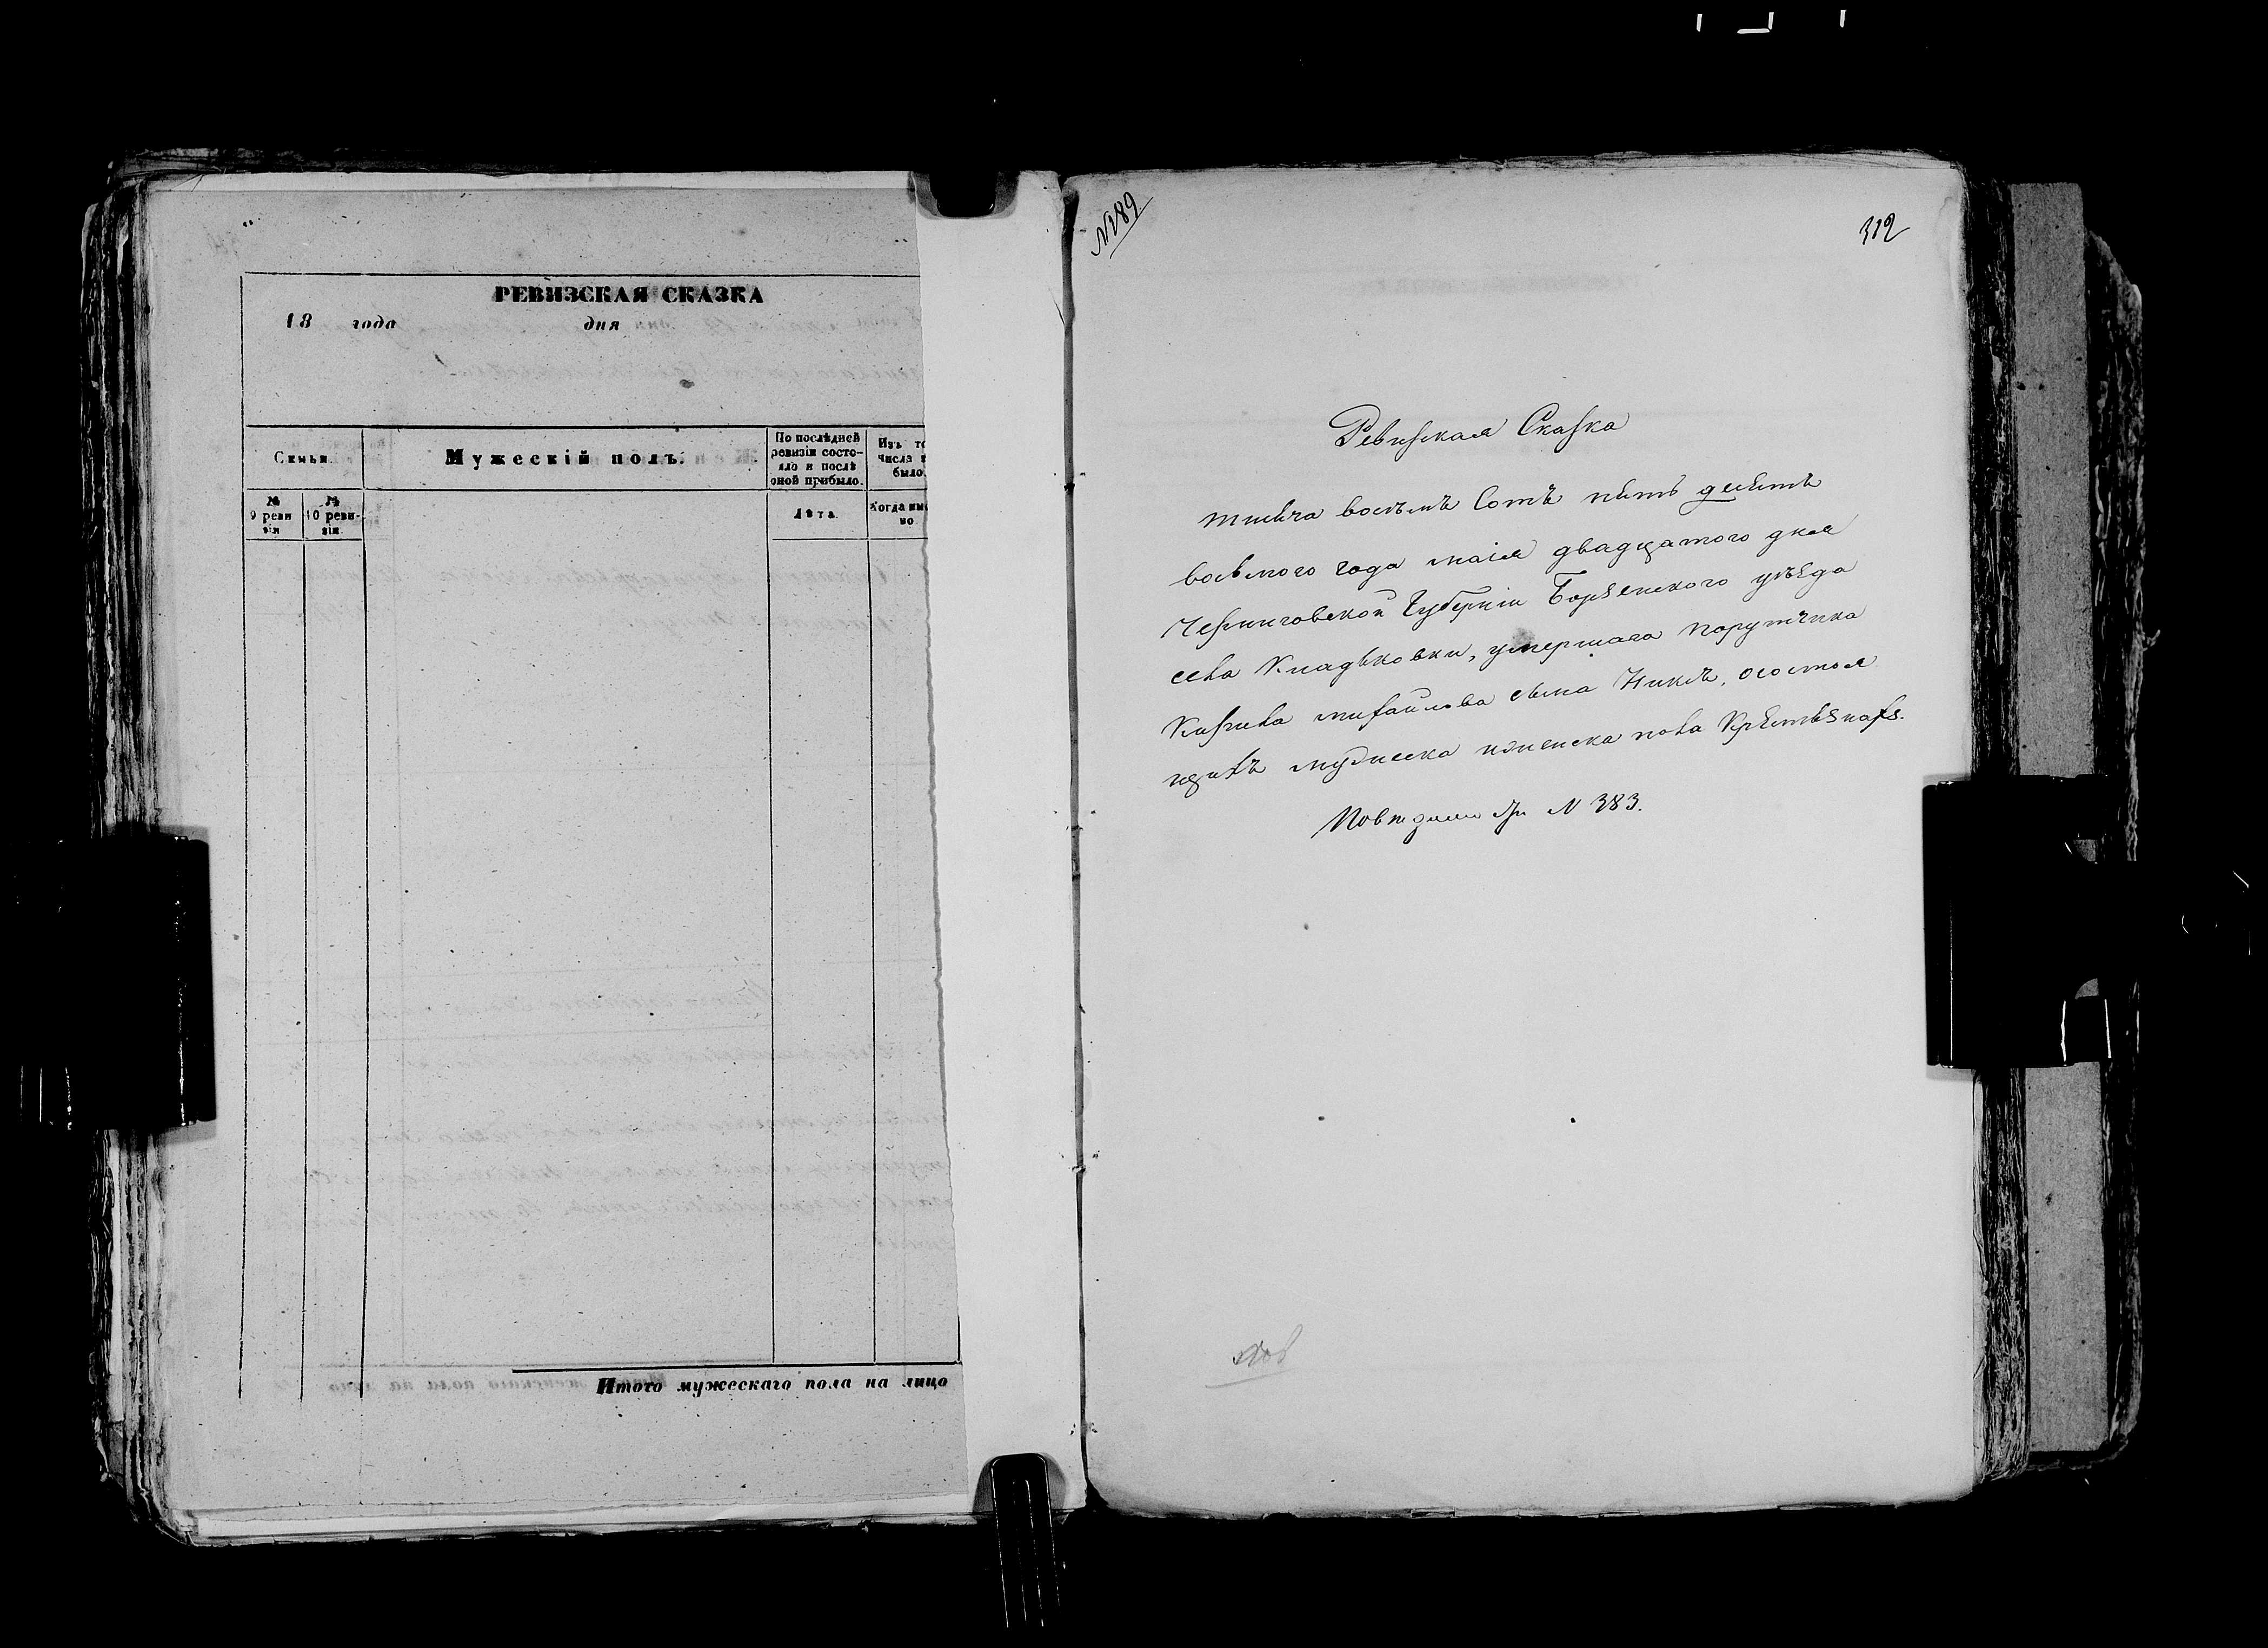 РЕВИЗСКАЯ СКАЗКА
18 года дня
Семьи.
Мужескій полъ.
По послѣдней ревизіи состояло и послѣ оной прибыло.
Изъ
числа
было.
№ 9 ревизіи
№ 10 ревизіи.
Лѣта.
Когда
но
Итого мужескаго пола на лицо
№189.
312
Ревизская Сказка
тысяча восемъ Сотъ пять десятъ
восьмого года маія двадцатого дня
Черниговской Губерніи Борзенского уѣзда
села Кладьковки, умершаго Поручика
Кирила михайлова сына, осостоя
щихъ мужеска иженска пола Крѣстьянахъ.
№ 383.